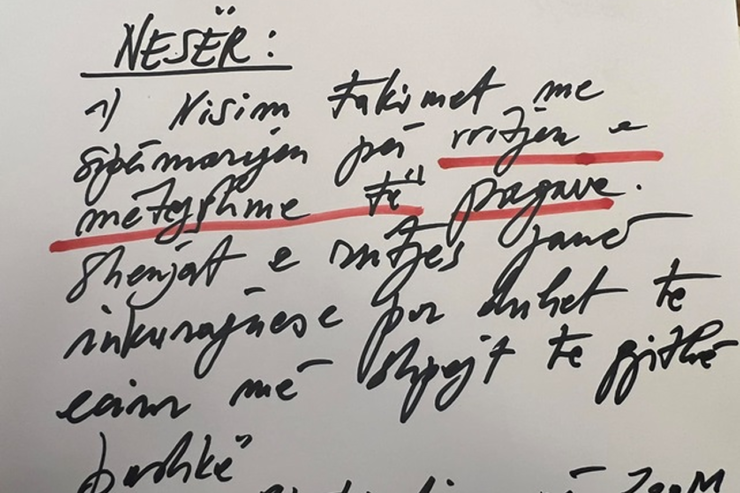 NESËR:
1) Nisim takimet me
sipërmarrjen për rritjen e
mëtejshme të pagave.
Shenjat e rritjes janë
inkurajuese por duhet të
ecim më shpejt të gjithë
bashkë
në ZOOM